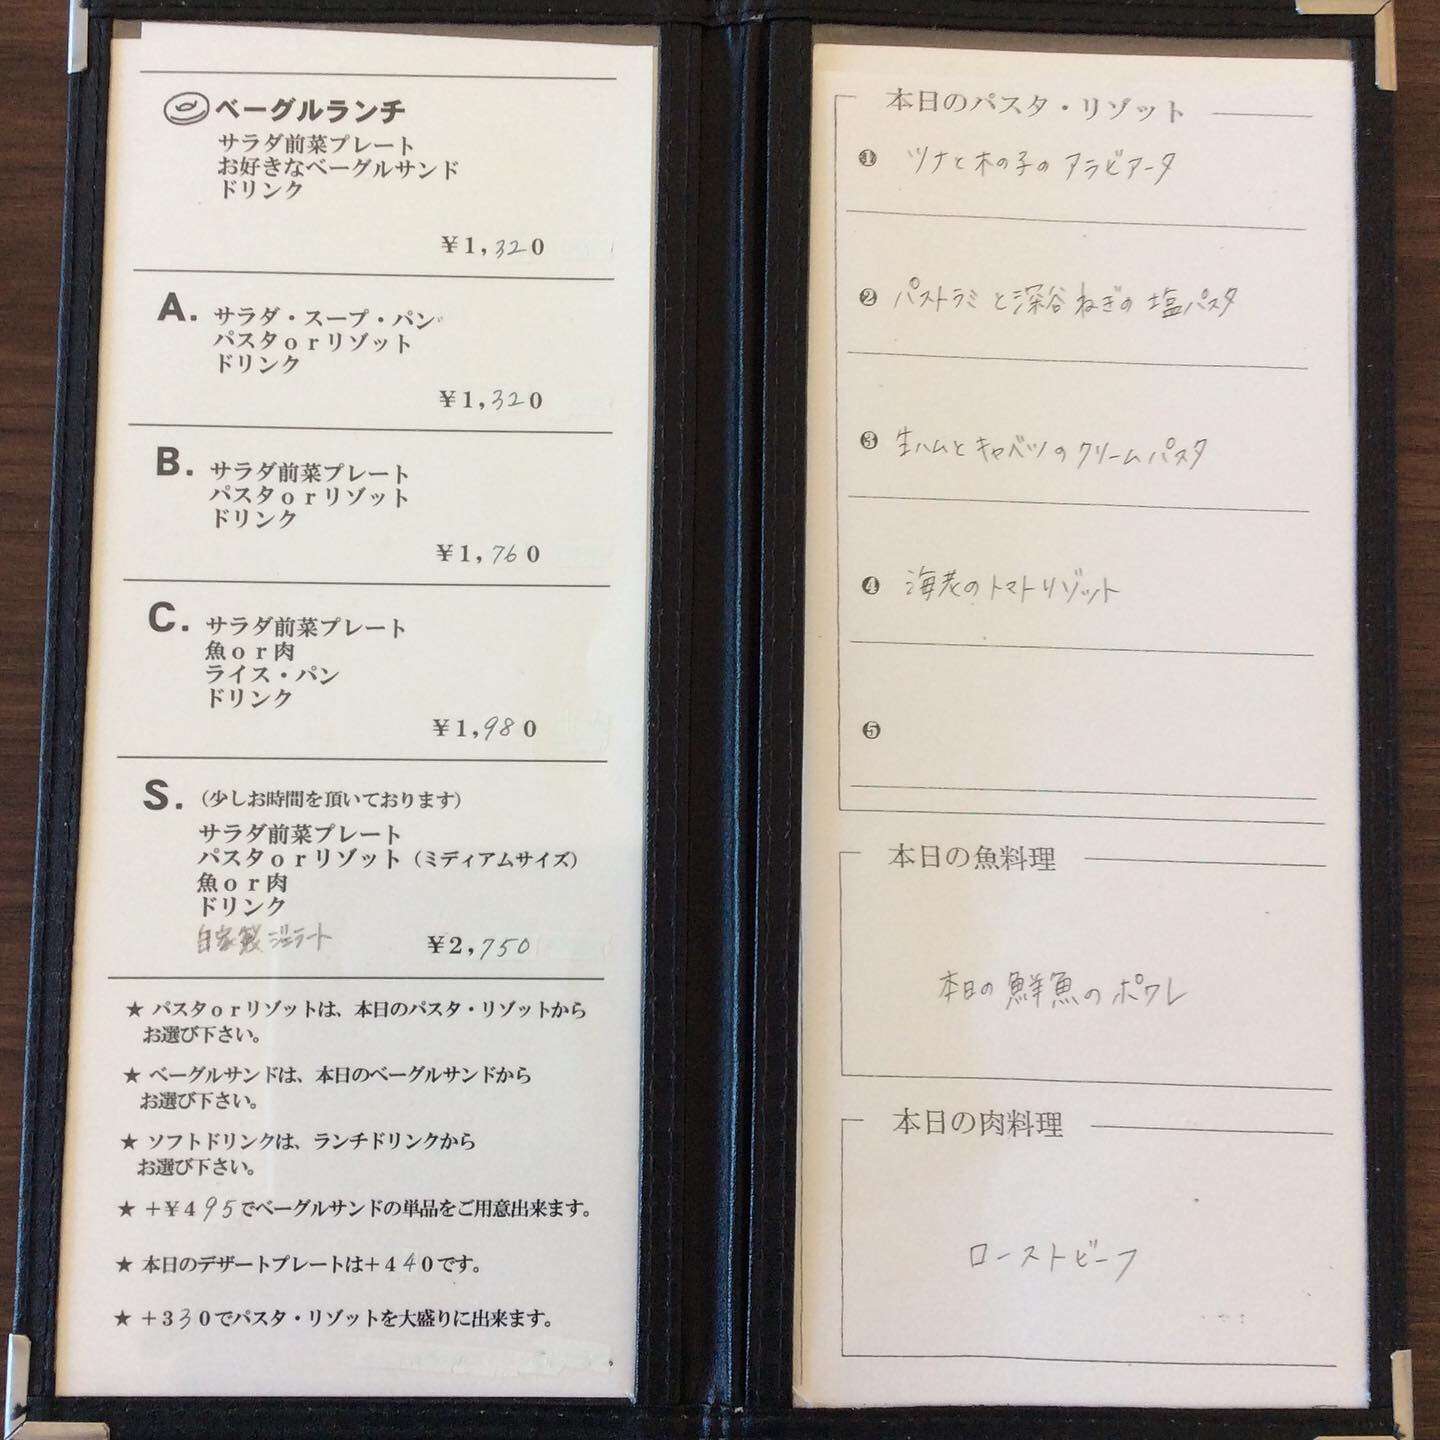 ベーグルランチ
サラダ前菜プレート
お好きなベーグルサンド
ドリンク
¥1,320
A. サラダ・スープ・パン
パスタorリゾット
ドリンク
¥1,320
B. サラダ前菜プレート
パスタorリゾット
ドリンク
¥1,760
C. サラダ前菜プレート
魚or肉
ライス・パン
ドリンク
¥1,980
S. (少しお時間を頂いております)
サラダ前菜プレート
パスタorリゾット(ミディアムサイズ)
魚or肉
ドリンク
自家製ジェラート
¥2,750
★ パスタorリゾットは、本日のパスタ・リゾットから
お選び下さい。
★ ベーグルサンドは、本日のベーグルサンドから
お選び下さい。
★ ソフトドリンクは、ランチドリンクから
お選び下さい。
★ +¥495でベーグルサンドの単品をご用意出来ます。
★ 本日のデザートプレートは+440です。
★ +330でパスタ・リゾットを大盛りに出来ます。
本日のパスタ・リゾット
❶ ツナと木の子のアラビアータ
❷ パストラミと深谷ねぎの塩パスタ
❸ 生ハムとキャベツのクリームパスタ
❹ 海老のトマトリゾット
❺
本日の魚料理
本日の鮮魚のポワレ
本日の肉料理
ローストビーフ